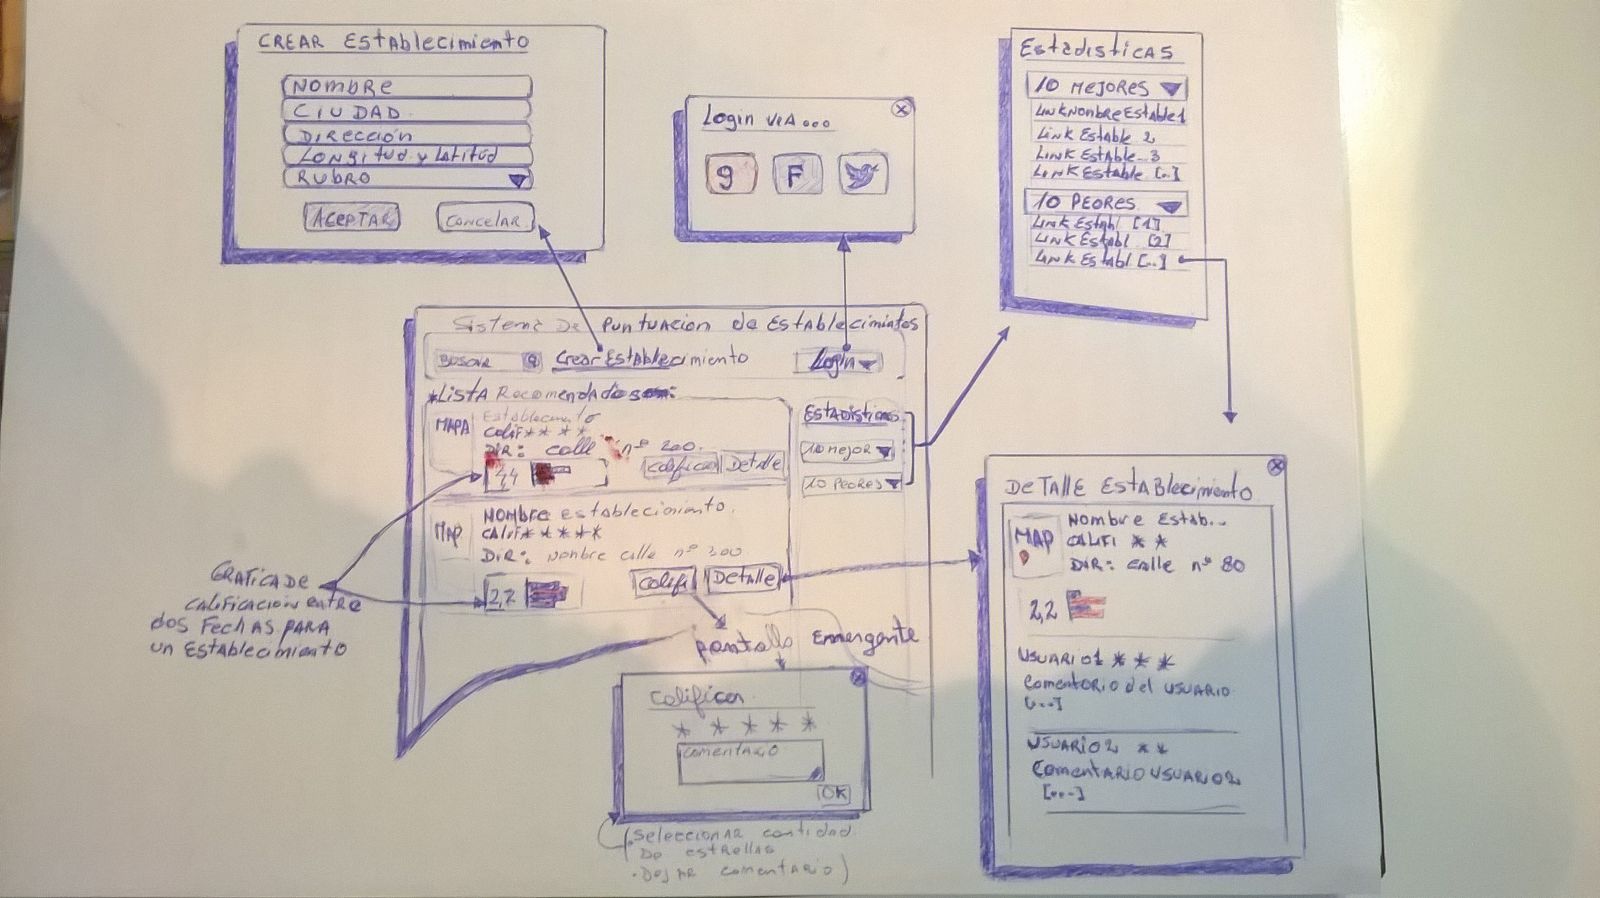 CREAR Establecimiento
NOMBRE
CIUDAD
DIRECCIÓN
LONGITUD y LATITUD
RUBRO
ACEPTAR
CONCELAR
Login VIA...
g
F
EstadISTICAS
10 MEJORES
LINKNOMBREESTABLE1
LINK EStable 2
LINK EStAble..3
LINK EStable [..]
10 PEORES
LINK EStabl [1]
LINK EStabl [2]
LINK EStabl [...]
Sistema De PUNTUACION de EstABlecimintos
BUSCAR
Crear EstABlecimiento
Login
*LISTA Recomendados
MAPA
Establecimiento
CALIF * * * *
DIR: calle nº 200.
4,4
Calificar
Detalle
MAP
NOMBRE establecimiento.
CALIF * * * * *
DIR: Nombre calle nº 300
2,2
Califi
Detalle
EstADISticas
10 mejor
10 PEORES
GRAFICA DE
CALIFICACION ENTRE
DOS FECHAS PARA
UN EStABLECIMIENTO
pantalla Emergente
Calificar
* * * * *
Comentario
OK
(Seleccionar cantidad
De estrellas
. Dejar comentario)
DeTALLE EStABlecimiento
MAP
Nombre Estab...
CALIFI * *
DIR: calle nº 80
2,2
USUARIO1 * * *
Comentario del USUARIO
[...]
USUARIO2 * *
Comentario USUARIO2
[...]